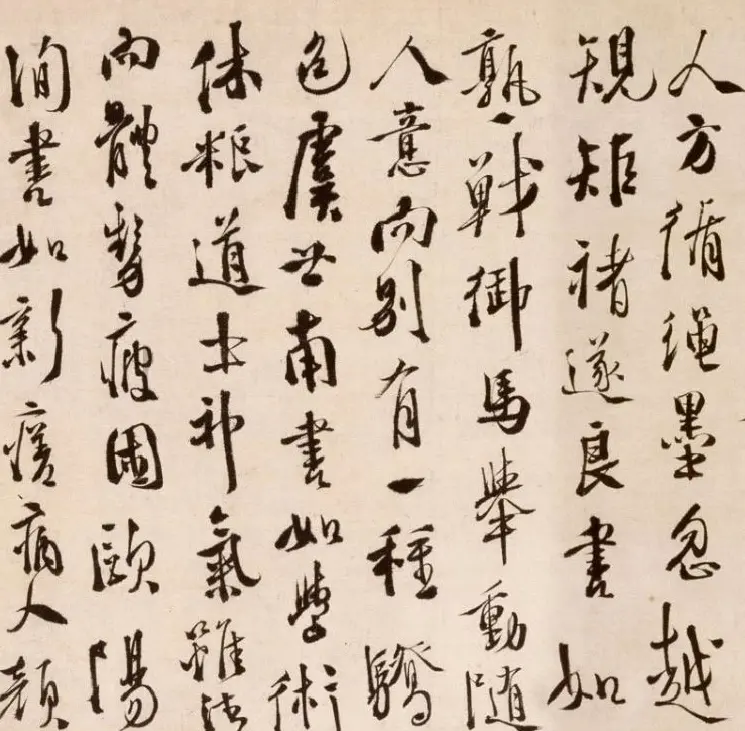 人方循繩墨忽越
規矩褚遂良書如
熟戰御馬舉動随
人意向別有一種驕
色虞世南書如學術
休粮道士神氣雖清
而體勢疲困歐陽
詢書如新瘥病人顏